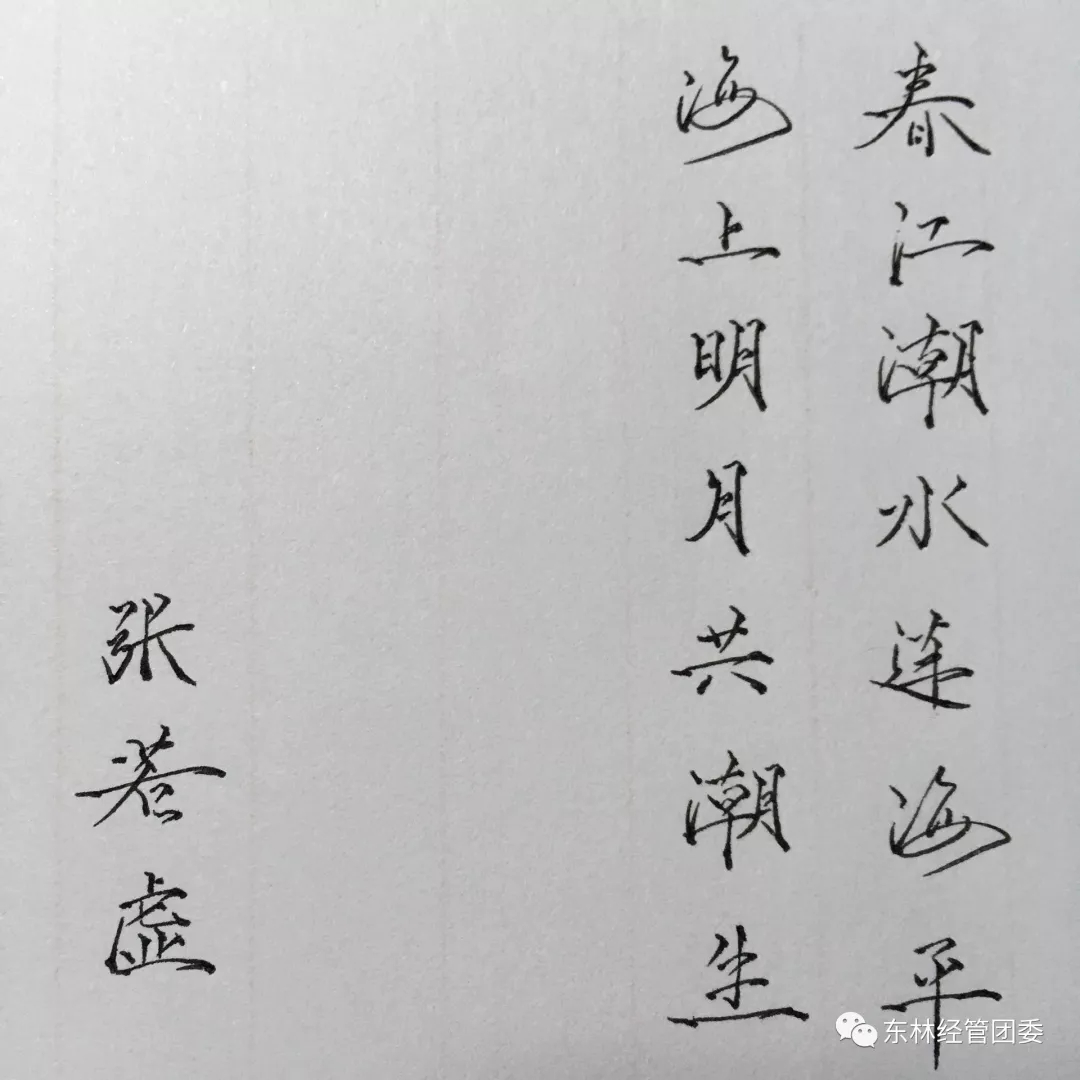 春江潮水连海平
海上明月共潮生
张若虚
东林经管团委